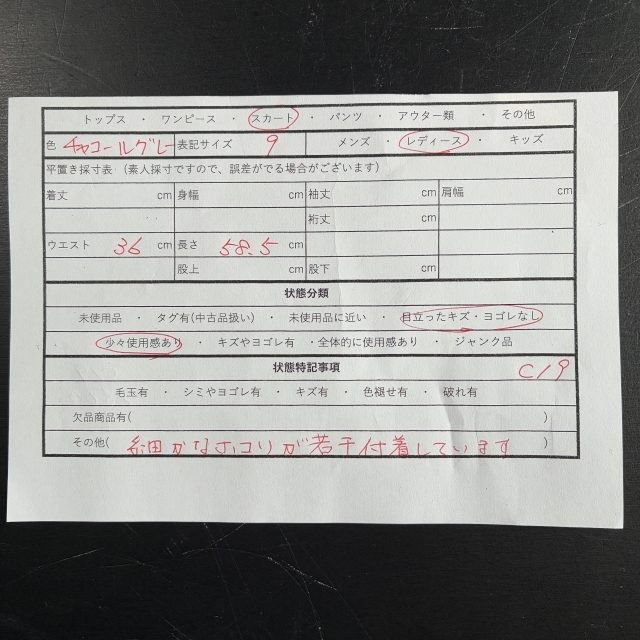 トップス ・ ワンピース ・ スカート ・ パンツ ・ アウター類 ・ その他
色 チャコールグレー 表記サイズ 9 メンズ ・ レディース ・ キッズ
平置き採寸表 (素人採寸ですので、誤差がでる場合がございます)
着丈 cm 身幅 cm 袖丈 cm 肩幅 cm
裄丈 cm
ウエスト 36 cm 長さ 58.5 cm
股上 cm 股下 cm
状態分類
未使用品 ・ タグ有(中古品扱い) ・ 未使用品に近い ・ 目立ったキズ・ヨゴレなし
少々使用感あり ・ キズやヨゴレ有 ・全体的に使用感あり ・ ジャンク品
状態特記事項 C19
毛玉有 ・ シミやヨゴレ有 ・ キズ有 ・ 色褪せ有 ・ 破れ有
欠品商品有( )
その他( 細かなホコリが若干付着しています )